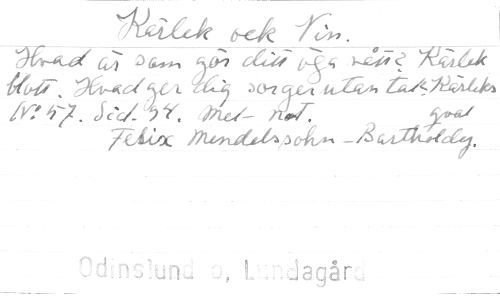 Kärlek och Vin.
Hvad är som gör ditt öga vått? Kärlek
blott. Hvad ger dig sorger utan tal? Kärleks
No 57. Sid. 74. Mel- not. qval
Felix Mendelssohn-Bartholdy.
Odinslund o, Lundagård